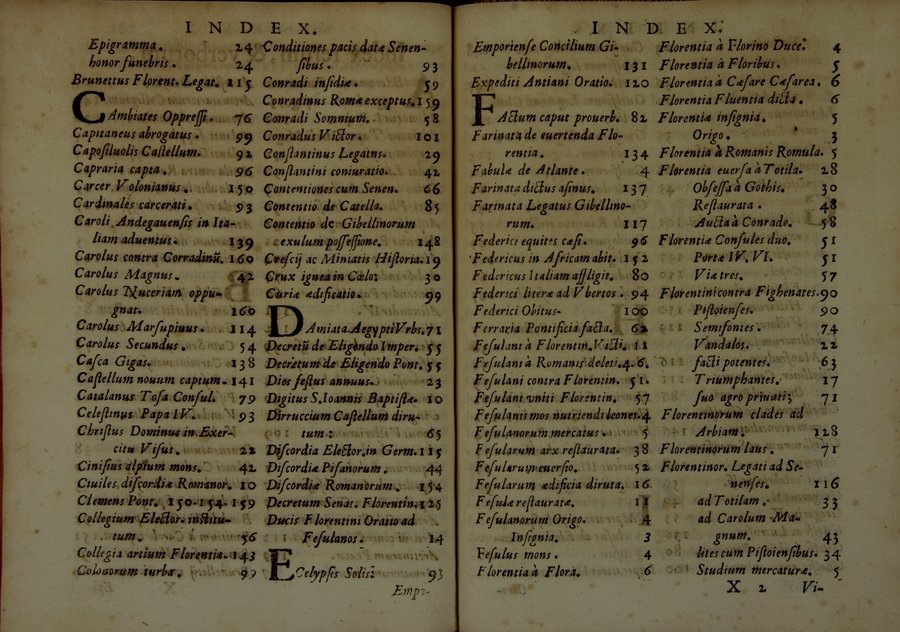 INDEX.
Epigramma. 24
honor funebris. 24
Brunettus Florent. Legat. 115
CAmbiates Oppressi. 76
Capitaneus abrogatus. 99
Caposiluolis Castellum. 92
Capraria capta. 96
Carcer Volonianus. 150
Cardinales carcerati. 93
Caroli Andegauensis in Ita-
liam aduentus. 139
Carolus contra Corradinū. 160
Carolus Magnus. 42
Carolus Nuceriam oppu-
gnat. 160
Carolus Marsupinus. 114
Carolus Secundus. 54
Casca Gigas. 138
Castellum nouum captum. 141
Catalanus Tosa Consul. 79
Celestinus Papa IV. 93
Christus Dominus in Exer-
citu Visus. 22
Cinisius alpium mons. 42
Ciuiles discordiæ Romanor. 10
Clemens Pont. 150-154. 159
Collegium Elector. institu-
tum. 56
Collegia artium Florentiæ. 143
Colonorum turba. 99
Conditiones pacis datæ Senen-
sibus. 93
Conradi insidiæ. 59
Conradinus Romæ exceptus. 159
Conradi Somnium. 58
Conradus Victor. 101
Constantinus Legatns. 29
Constantini coniuratio. 42
Contentiones cum Senen. 66
Contentio de Catella. 85
Contentio de Gibellinorum
exulum possessione. 148
Crescij ac Miniatis Historia. 19
Crux ignea in Cœlo: 30
Curiæ ædificatio. 99
DAmiata Aegypti Vrbs. 71
Decretū de Eligendo Imper. 55
Decretum de Eligendo Pont. 55
Dies festus annuus. 23
Digitus S. Ioannis Baptistæ. 10
Dirruccium Castellum diru-
tum: 65
Discordia Elector. in Germ. 115
Discordiæ Pisanorum. 44
Discordiæ Romanorum. 154
Decretum Senat. Florentin. 125
Ducis Florentini Oratio ad
Fesulanos. 14
EClypsis Solis: 93
Empo-
INDEX.
Emporiense Concilium Gi-
bellinorum. 131
Expediti Antiani Oratio. 120
FActum caput prouerb. 82
Farinata de euertenda Flo-
rentia. 134
Fabulæ de Atlante. 4
Farinata dictus asinus. 137
Farinata Legatus Gibellino-
rum. 117
Federici equites cæsi. 96
Federicus in Africam abit. 152
Federicus Italiam affligit. 80
Federici literæ ad Vbertos. 94
Federici Obitus- 100
Ferraria Pontificia facta. 62
Fesulani à Florentin. Victi. 11
Fesulani à Romanis deleti. 4. 6.
Fesulani contra Florentin. 51.
Fesulani vniti Florentin. 57
Fesulanis mos nutriendi leones. 4
Fesulanorum mercatus. 5
Fesularum arx restaurata. 38
Fesularum euersio. 52
Fesularum ædificia diruta. 16
Fesulæ restauratæ. 11
Fesulanorum Origo. 4
Insignia. 3
Fesulus mons. 4
Florentia à Flora. 6
Florentia à Florino Duce. 4
Florentia à Floribus. 5
Florentia à Cæsare Cæsarea. 6
Florentia Fluentia dicta. 6
Florentiæ insignia. 5
Origo. 3
Florentia à Romanis Romula. 5
Florentia euersa à Totila. 28
Obsessa à Gothis. 30
Restaurata. 48
Aucta à Conrado. 58
Florentiæ Consules duo. 51
Portæ IV. VI. 51
Viæ tres. 57
Florentini contra Fighenates. 90
Pistoienses. 90
Semifontes. 74
Vandalos. 22
facti potentes. 63
Triumphantes. 17
suo agro priuati; 71
Florentinorum clades ad
Arbiam: 128
Florentinorum laus. 71
Florentinor. Legati ad Se-
nenses. 116
ad Totilam. 33
ad Carolum Ma-
gnum. 43
lites cum Pistoiensibus. 34
Studium mercaturæ. 5
X 2 Vi-